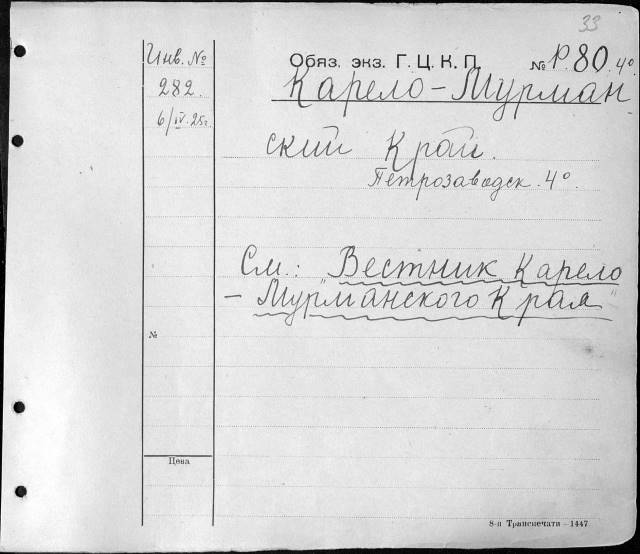 33
Инв. №
282.
6/IV. 25г.
Обяз. экз. Г. Ц. К. П. № Р. 80. 4°
Карело-Мурман
ский Край.
Петрозаводск. 4°.
См.: "Вестник Карело
- Мурманского Края"
№
Цена
8-я Транспечати—1447